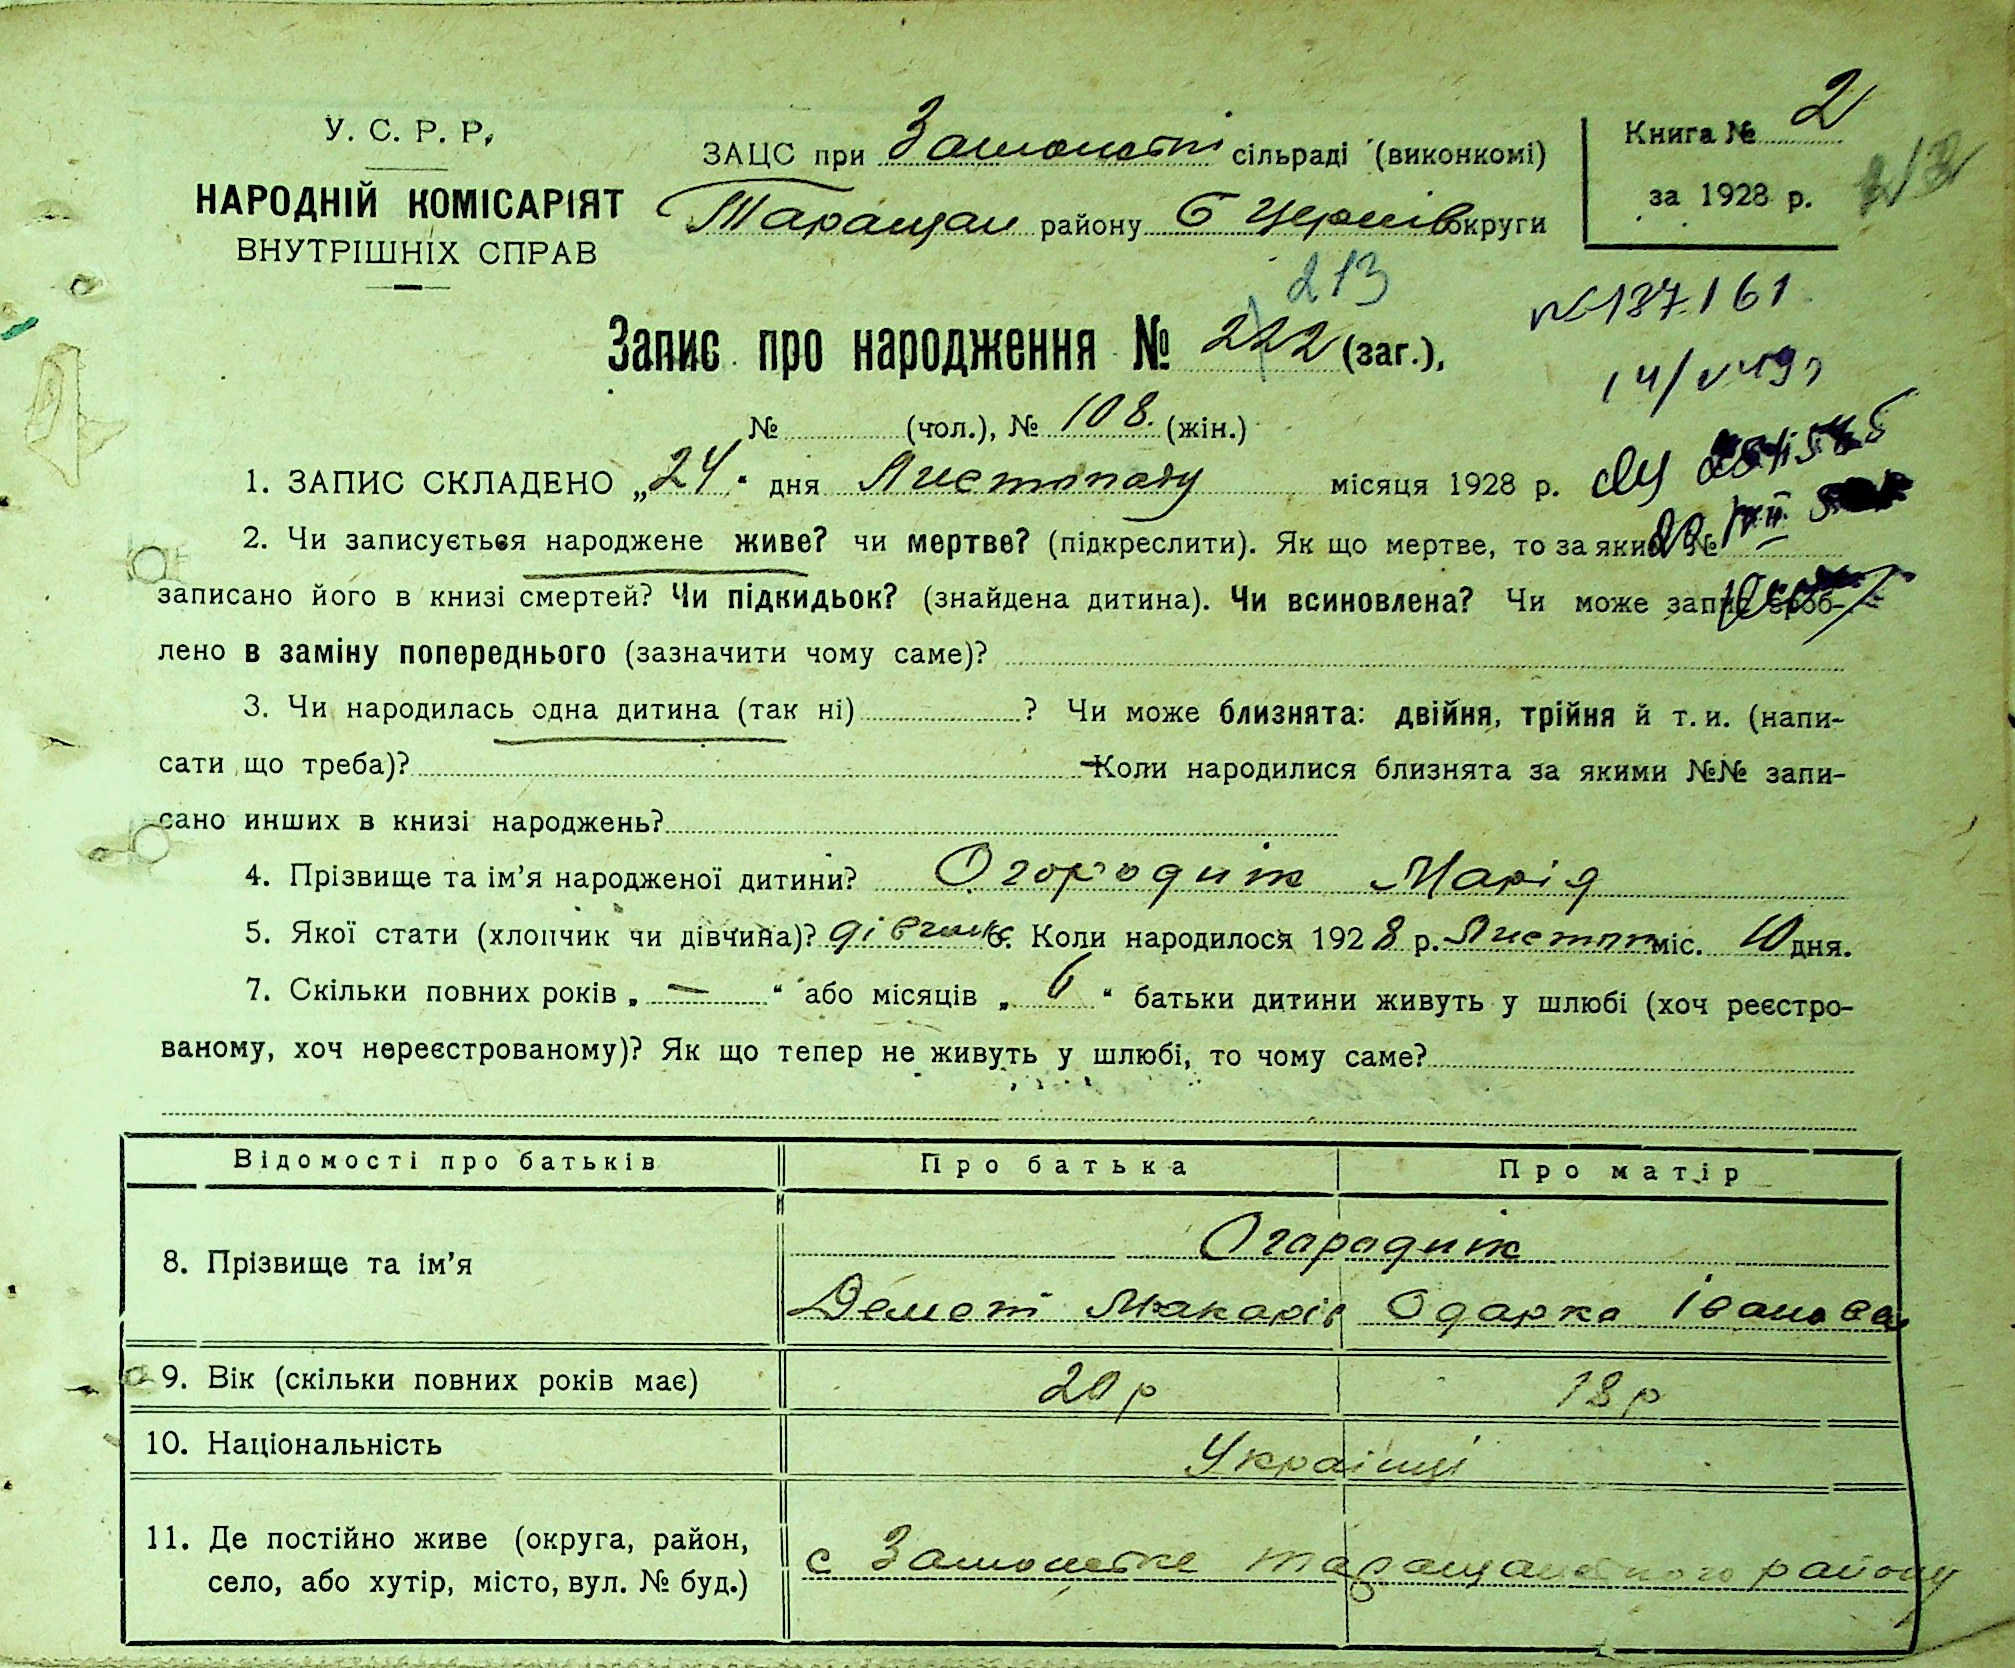 У. С. Р. Р.
НАРОДНІЙ КОМІСАРІЯТ
ВНУТРІШНІХ СПРАВ
ЗАЦС при сільраді (виконкомі)
Таращан району Б Церків округи
Книга № 2
за 1928 р.
213
213
Запис про народження № 222 (заг.),
№ (чол.), № 108. (жін.)
№ 137161
1. ЗАПИС СКЛАДЕНО „24“ дня Листопаду місяця 1928 р.
2. Чи записується народжене живе? чи мертве? (підкреслити). Як що мертве, то за яким №
записано його в книзі смертей? Чи підкидьок? (знайдена дитина). Чи всиновлена? Чи може запис зроб-
лено в заміну попереднього (зазначити чому саме)?
3. Чи народилась одна дитина (так ні) ? Чи може близнята: двійня, трійня й т. и. (напи-
сати що треба)? Коли народилися близнята за якими №№ запи-
сано инших в книзі народжень?
4. Прізвище та ім’я народженої дитини? Огородник Марія
5. Якої стати (хлопчик чи дівчина)? дівчина 6. Коли народилося 1928 р. Листоп міс. 10 дня.
7. Скільки повних років „ — “ або місяців „ 6 “ батьки дитини живуть у шлюбі (хоч реєстро-
ваному, хоч нереєстрованому)? Як що тепер не живуть у шлюбі, то чому саме?
Відомості про батьків Про батька Про матір
8. Прізвище та ім’я Огарадник
Макарів Одарка Іванова
9. Вік (скільки повних років має) 20 р 18 р
10. Національність Українці
11. Де постійно живе (округа, район,
село, або хутір, місто, вул. № буд.) с Таращанского району